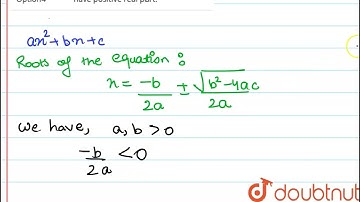 Option4 have positive real part.
ax²+bx+c
Roots of the equation :
x = -b/2a ± √(b²-4ac)/2a
we have, a, b > 0
-b/2a < 0
doubtnut